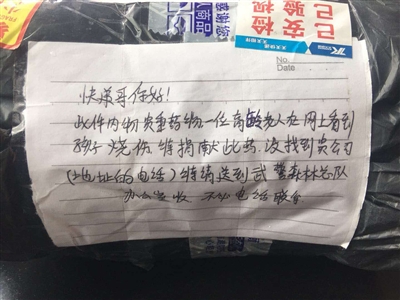 已安检
已验视
天天快递
No.
Date
快递哥你好!
此件内物贵重药物一位高龄老人在网上看到
孩子烧伤特捐献此药没找到贵公司
(地址的电话)特请送到武警森林总队
办公室收
电话联系